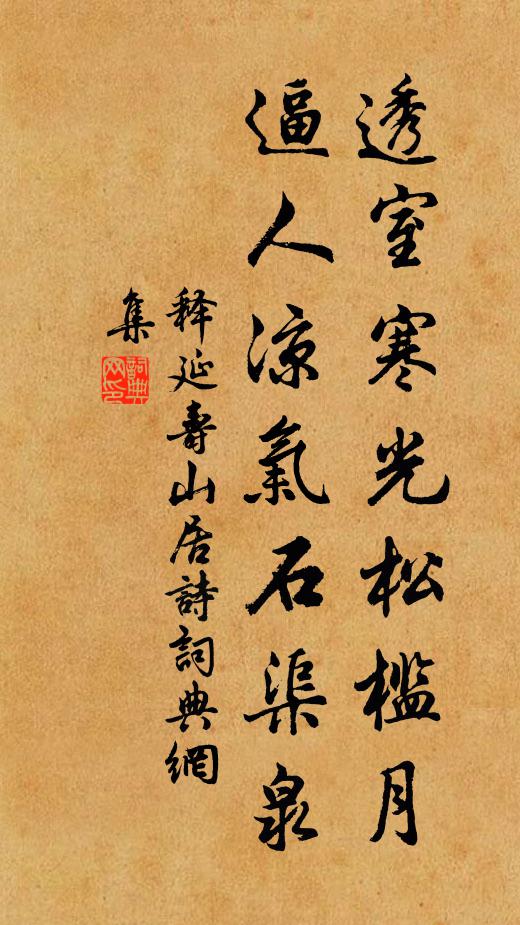 透室寒光松檻月
逼人涼氣石渠泉
释延壽山居詩詞典網
集
詞典
网印